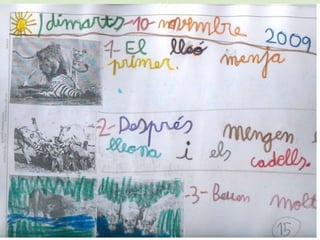 dimarts 10 novembre 2009
1- El lleó menja
primer.
2- Després mengen
lleona i els cadells.
-3- Beuen molt
15